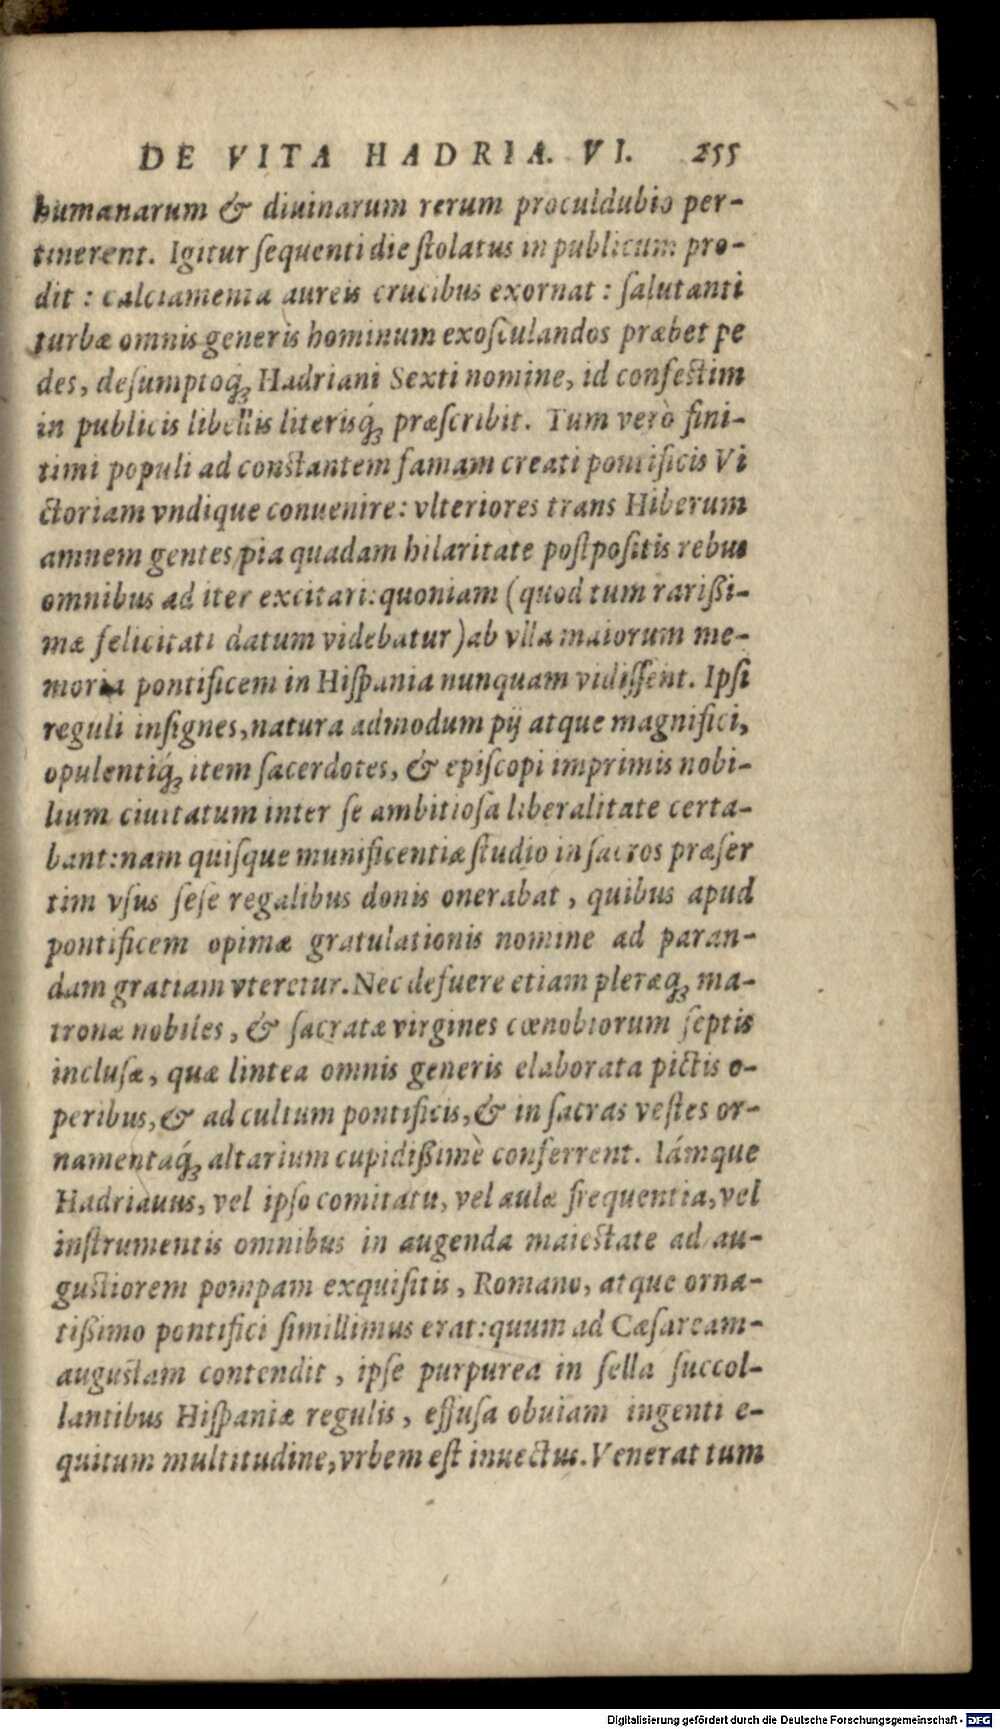 DE VITA HADRIA. VI. 255
humanarum & diuinarum rerum proculdubio per-
tinerent. Igitur ſequenti die ſtolatus in publicum pro-
dit : calciamenta aureis crucibus exornat : ſalutanti
turbæ omnis generis hominum exoſculandos præbet pe
des, deſumptoq́ꝫ Hadriani Sexti nomine, id confeſtim
in publicis libellis literisq́ꝫ præſcribit. Tum verò fini-
timi populi ad conſtantem famam creati pontificis Vi
ctoriam vndique conuenire: vlteriores trans Hiberum
amnem gentes pia quadam hilaritate poſtpoſitis rebus
omnibus ad iter excitari: quoniam (quod tum rarißi-
mæ felicitati datum videbatur) ab vlla maiorum me-
moria pontificem in Hiſpania nunquam vidiſſent. Ipſi
reguli inſignes, natura admodum pij atque magnifici,
opulentiq́ꝫ item ſacerdotes, & epiſcopi imprimis nobi-
lium ciuitatum inter ſe ambitioſa liberalitate certa-
bant: nam quiſque munificentiæ ſtudio in ſacros præſer
tim vſus ſeſe regalibus donis onerabat, quibus apud
pontificem opimæ gratulationis nomine ad paran-
dam gratiam vteretur. Nec defuere etiam pleræq́ꝫ ma-
tronæ nobiles, & ſacratæ virgines cœnobiorum ſeptis
incluſæ, quæ lintea omnis generis elaborata pictis o-
peribus, & ad cultum pontificis, & in ſacras veſtes or-
namentaq́ꝫ altarium cupidißimè conferrent. Iámque
Hadriauus, vel ipſo comitatu, vel aulæ frequentia, vel
inſtrumentis omnibus in augenda maieſtate ad au-
guſtiorem pompam exquiſitis, Romano, atque orna-
tißimo pontifici ſimillimus erat: quum ad Cæſaream-
auguſtam contendit, ipſe purpurea in ſella ſuccol-
lantibus Hiſpaniæ regulis, effuſa obuiam ingenti e-
quitum multitudine, vrbem eſt inuectus. Venerat tum
Digitalisierung gefördert durch die Deutsche Forschungsgemeinschaft - DFG